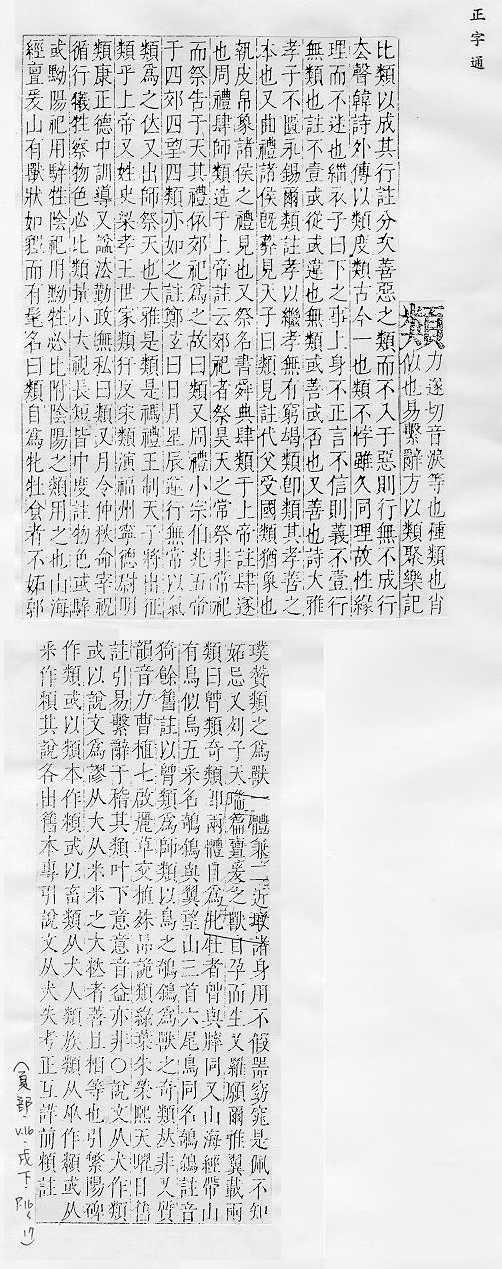 正字通
類 力遂切音淚等也種類也肖
似也易繫辭方以類聚樂記
比類以成其行註分次善惡之類而不入于惡則行無不成行
厺聲韓詩外傳以類度類古今一也類不悖雖久同理故性緣
理而不迷也緇衣子曰下之事上身不正言不信則義不壹行
無類也註不壹或從或違也無類或善或否也又善也詩大雅
孝子不匱永錫爾類註孝以繼孝無有窮竭類卽類其孝善之
本也又曲禮諸侯旣葬見天子曰類見註代父受國類猶象也
執皮帛象諸侯之禮見也又祭名書舜典肆類于上帝註肆遂
也周禮肆師類造于上帝註云郊祀者祭昊天之常祭非常祀
而祭告于天其禮依郊祀爲之故曰類又周禮小宗伯兆五帝
于四郊四望四類亦如之註鄭玄曰日月星辰運行無常以氣
類爲之位又出師祭天也大雅是類是禡禮王制天子將出征
類乎上帝又姓史梁孝王世家類犴反宋類演福州寧德尉明
類康正德中訓導又謚法勤政無私曰類又月令仲秋命宰祝
循行犧牲察物色必比類量小大視長短皆中度註物色或騂
或黝陽祀用騂牲陰祀用黝牲必比附陰陽之類用之也山海
經亶爰山有獸狀如貍而有髦名曰類自爲牝牡食者不妬郭
璞贊類之爲獸一體兼二近取諸身用不假器窈窕是佩不知
妬忌又列子天瑞篇亶爰之獸自孕而生又羅願爾雅翼載兩
類曰類奇類卽兩體自爲牝牡者與同又山海經帶山
有鳥似烏五采名鵸鵌與翼望山三首六尾鳥同名鵸鵌註音
猗餘舊註以類爲師類以鳥之鵸鵌爲獸之奇類𠀤非又質
韻音力曹植七啟麗草交植殊品詭類綠葉朱榮熙天曜日舊
註引易繫辭于稽其類叶下意意音益亦非○說文从犬作類
或以說文爲謬从大从米米之大者善且相等也引繁陽碑
作類或以類本作頪或以畜類从犬人類族類从作或从
釆作其說各由舊本專引說文从犬失考正互詳前頪註
(頁部·V.16·戌下 P.16~17)